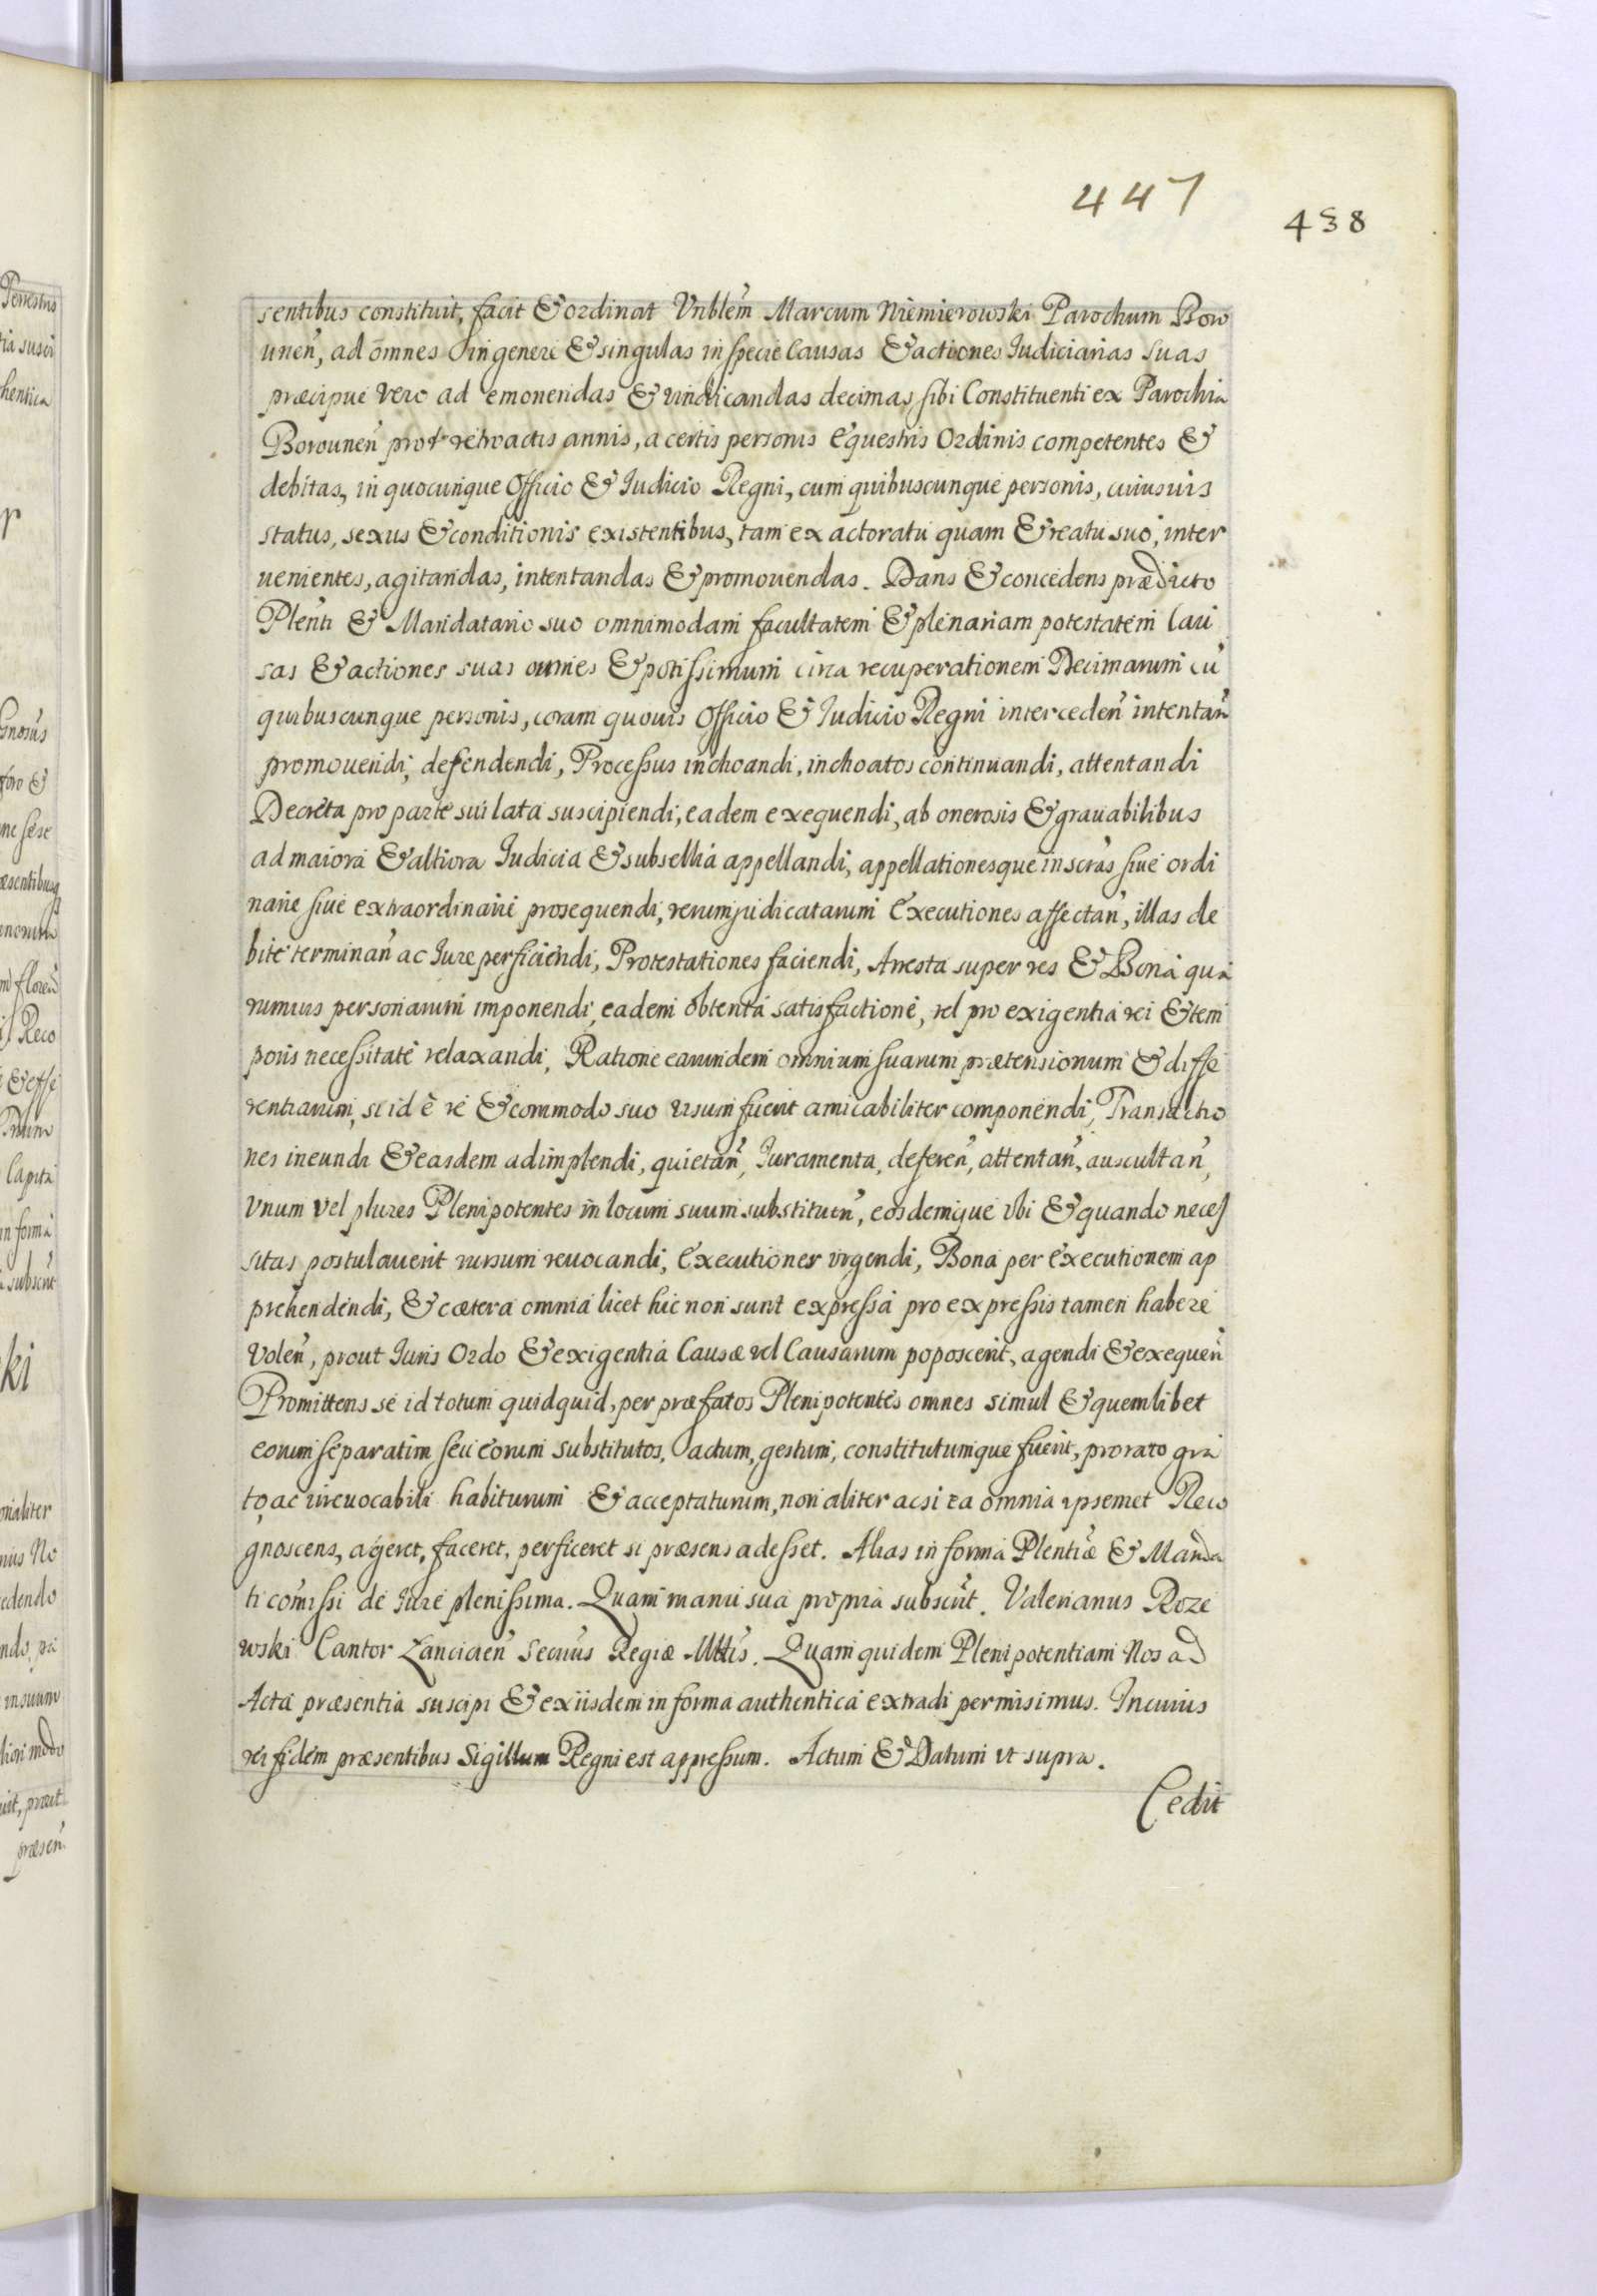 447
438
sentibus constituit, facit & ordinat Vnblem̃ Marcum Niemierowski Parochum Boro
unen̄, ad om̃nes in genere & singulas in specie Causas & actiones Iudiciarias suas
præcipue vero ad emonendas & vindicandas decimas sibi Constituenti ex Parochia
Borounen̄ pro retroactis annis, a certis personis Equestris Ordinis competentes &
debitas, in quocunque Officio & Iudicio Regni, cum quibuscunque personis, cuiusuis
status, sexus & conditionis existentibus, tam ex actoratu quam & reatu suo, inter
uenientes, agitandas, intentandas & promouendas. Dans & concedens prædicto
Pleñti & Mandatario suo omnimodam facultatem & plenariam potestatem Cau
sas & actiones suas omnes & potissimum circa recuperationem Decimarum cū
quibuscunque personis, coram quouis Officio & Iudicio Regni interceden̄ intentan̄
promouendi, defendendi, Processus inchoandi, inchoatos continuandi, attentandi
Decreta pro parte sui lata suscipiendi, eadem exequendi, ab onerosis & grauabilibus
ad maiora & altiora Iudicia & subsellia appellandi, appellationesque inscr̃as siue ordi
narie siue extraordinarie prosequendi, rerum judicatarum Executiones affectan̄, illas de
bite terminan̄ ac Iure perficiendi, Protestationes faciendi, Arresta super res & Bona qua
rumuis personarum imponendi, eadem obtenta satisfactione, vel pro exigentia rei & tem
poris necessitate relaxandi, Ratione earumdem omnium suarum prætensionum & diffe
rentiarum, si id è re & commodo suo visum fuerit amicabiliter componendi, Transactio
nes ineundi & easdem adimplendi, quietan̄, Iuramenta, deferen̄, attentan̄, auscultan̄,
Vnum vel plures Plenipotentes in locum suum substituen̄, eosdemque vbi & quando neces
sitas postulauerit rursum reuocandi, Executiones vrgendi, Bona per Executionem ap
prehendendi, & cætera omnia licet hic non sunt expressa pro expressis tamen habere
Volen̄, prout Iuris Ordo & exigentia Causæ vel Causarum poposcerit, agendi & exequen̄
Promittens se id totum quidquid, per præfatos Plenipotentes omnes simul & quemlibet
eorum separatim seu eorum substitutos, actum, gestum, constitutumque fuerit, pro rato gra
to, ac irreuocabili habiturum & acceptaturum, non aliter acsi ea omnia ipsemet Reco
gnoscens, ageret, faceret, perficeret si præsens adesset. Alias in forma Pleñtiæ & Manda
ti com̃issi de Iure plenissima. Quam manu sua propria subscr̃it. Valerianus Roze
wski Cantor Lanciaen̄ Secrius Regiæ Mttis. Quam quidem Plenipotentiam Nos ad
Acta præsentia suscipi & ex iisdem in forma authentica extradi permisimus. In cuius
rei fidem præsentibus Sigillum Regni est appressum. Actum & Datum vt supra.
Cedit